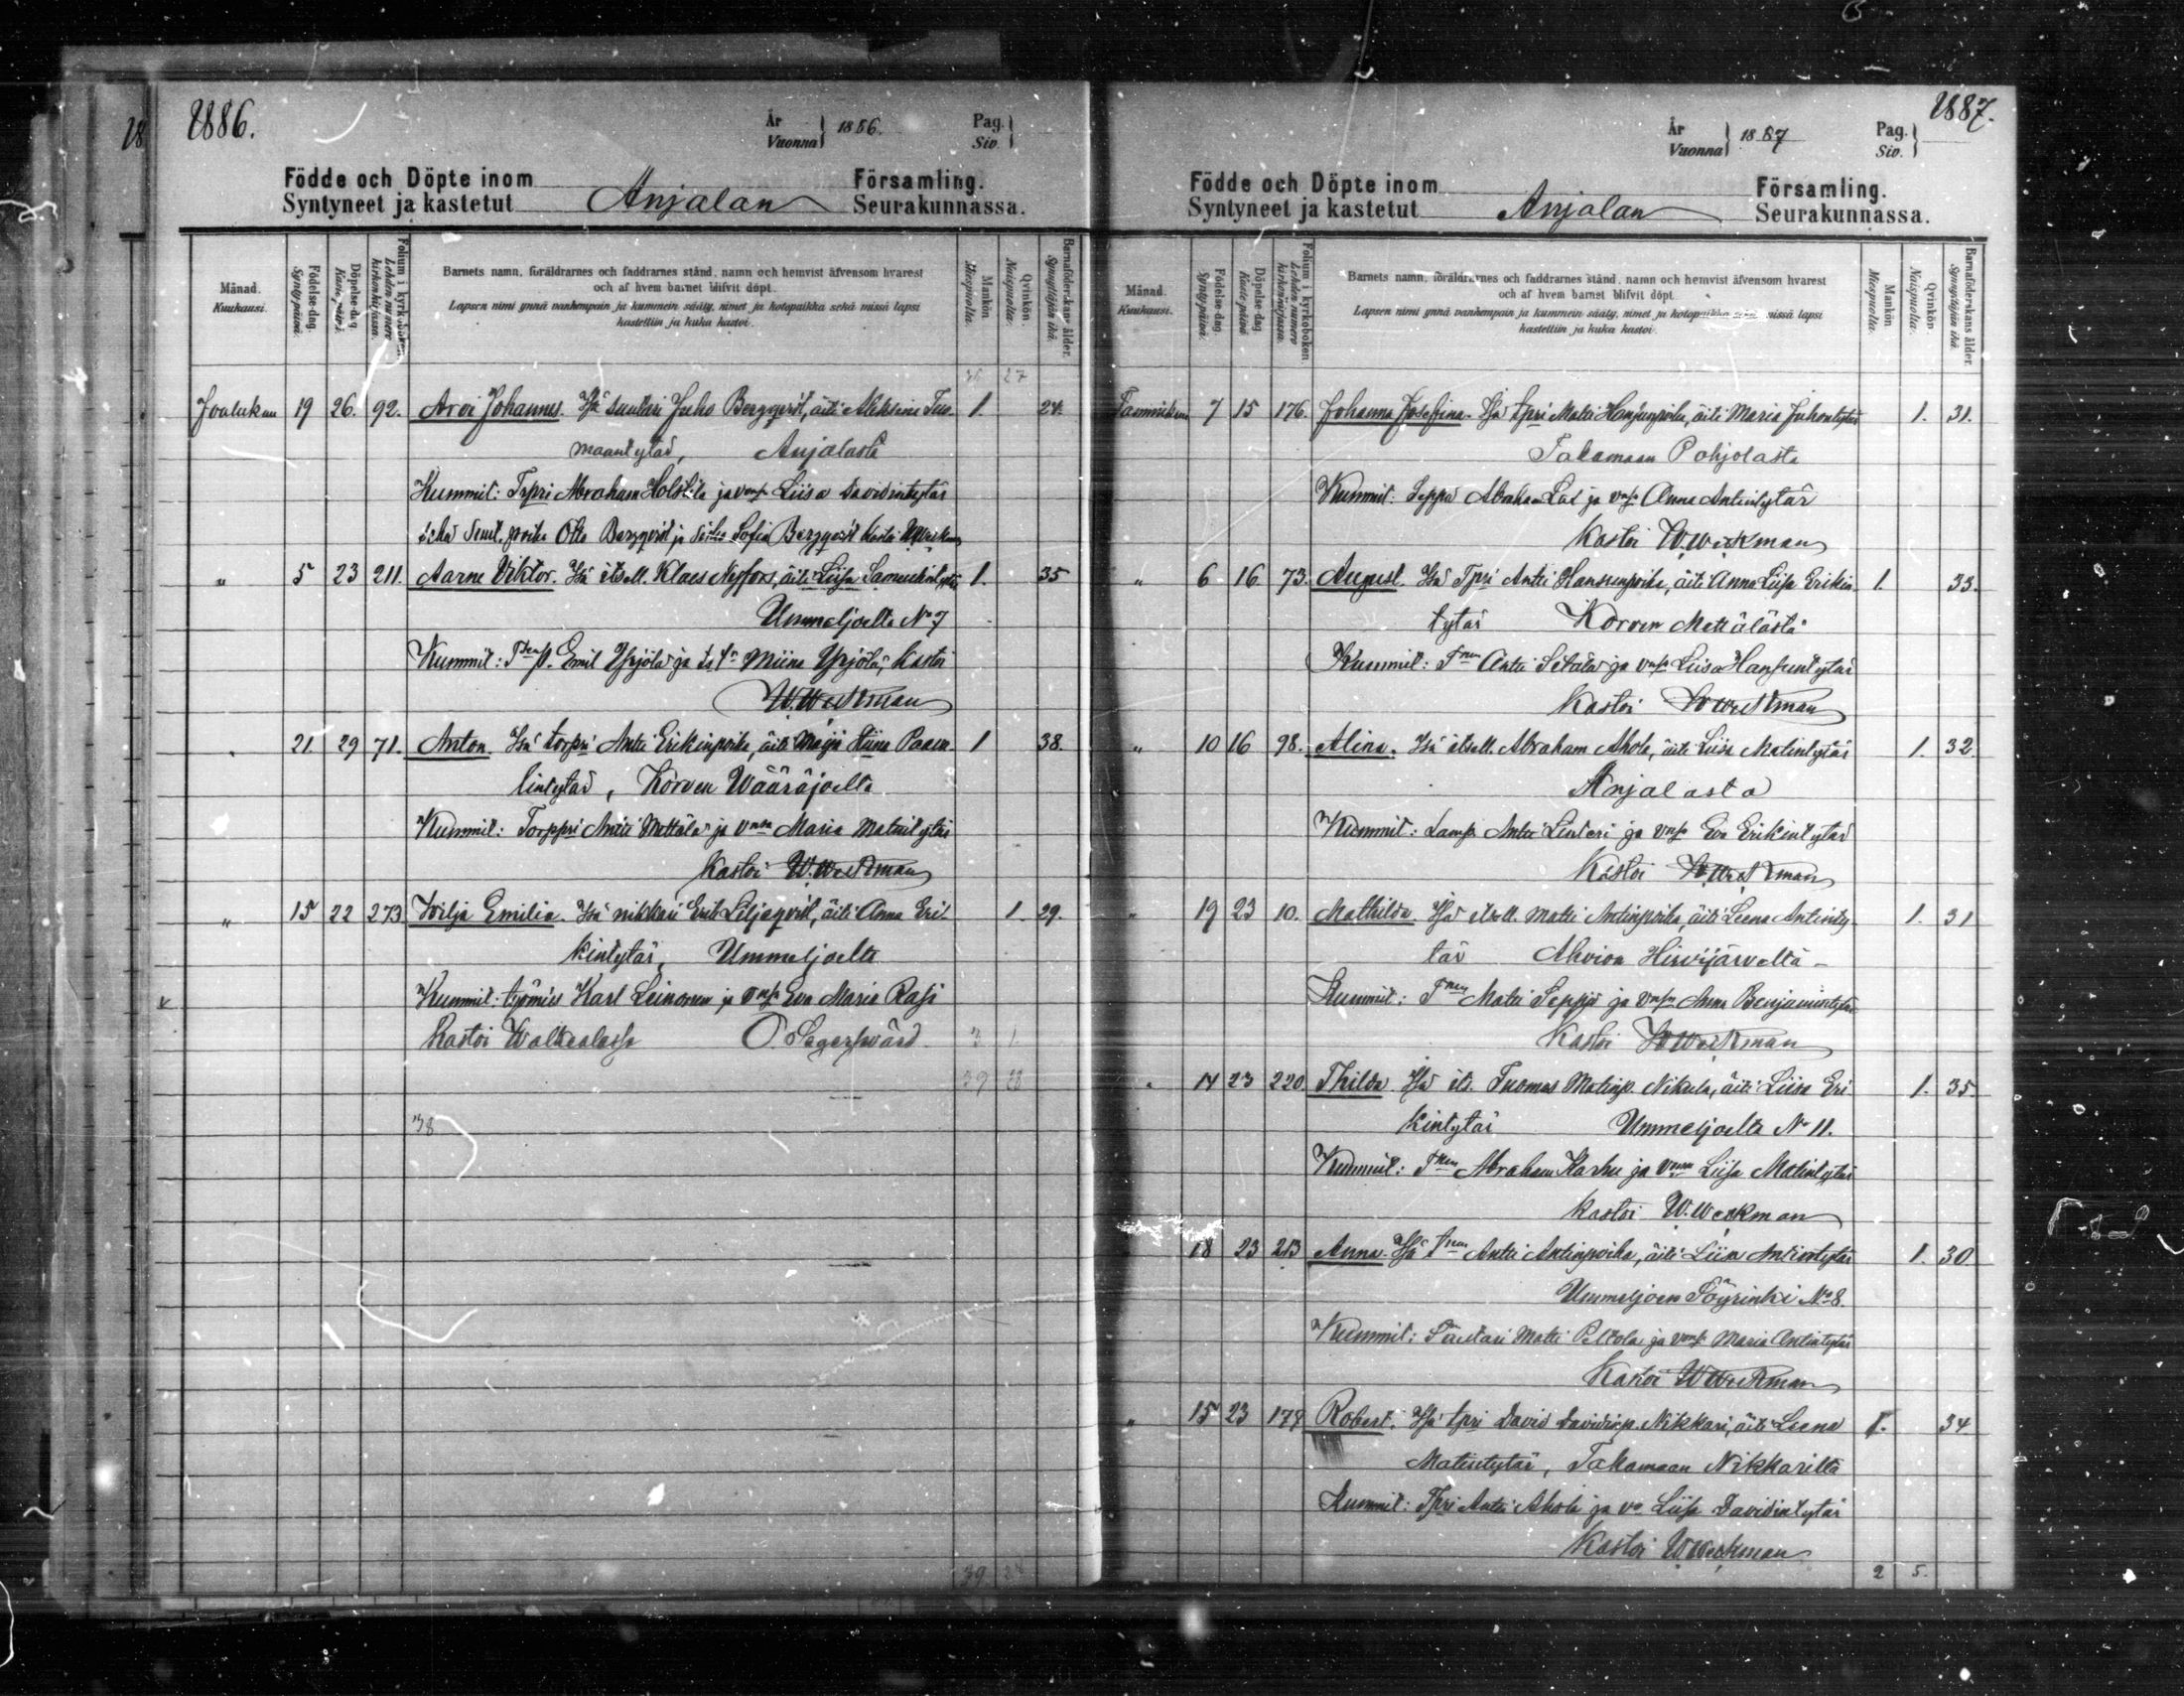 1886.
År
Vuonna } 1886.
Pag.
Siv. }
Födde och Döpte inom
Syntyneet ja kastetut
Anjalan
Församling.
Seurakunnassa.
Månad.
Kuukausi.
Födelse-dag.
Syntypäivä.
Döpelse-dag.
Kaste-päivä.
Folium i kyrkoboken.
Lehden numero kirkonkirjassa.
Barnets namn, föräldrarnes och faddrarnes stånd, namn och hemvist äfvensom hvarest
och af hvem barnet blifvit döpt.
Lapsen nimi ynnä vanhempain ja kummein sääty, nimet ja kotopaikka sekä missä lapsi
kastettiin ja kuka kastoi.
Mankön
Miespuolia.
Qvinkön.
Naispuolia.
Barnaföderskans ålder.
Synnyttäjän ikä.
27
Joulukuu 19 26. 92. Arvi Johannes. Isä suutari Juho Bergqvist, äiti Aleksina Tuo- 1. 24.
maantytär, Anjalasta
Kummit: Abraham Holstila ja Liisa Davidintytär
sekä poika Otto Bergqvist ja Sofia Bergqvist kastoi W. Weckman
" 5 23 211. Aarne Viktor. Isä itsell. Klaes Nyfors, äiti Liisa 1. 35
Ummeljoelta No 7
Kummit: Emil Yrjölä ja Miina Yrjölä, kastoi
W. Weckman
" 21. 29 71. Anton. Isä torppri Antti Erikinpoika, äiti Maija Stiina Paava- 1 38.
lintytär, Korven Wääräjoelta
Kummit: Torppri Antti Mettälä ja Maria Matintytär
Kastoi W. Weckman
" 15 22 273 Wilja Emilia. Isä nikkari Erik Liljeqvist, äiti Anna Eri- 1. 29.
kintytär, Ummeljoelta
Kummit: työmies Karl Leinonen ja Eva Maria Rasi
Kastoi Walkealassa O. Segerswärd. 3 1.
39 28
38
39
1887.
År
Vuonna } 1887
Pag.
Siv. }
Födde och Döpte inom
Syntyneet ja kastetut
Anjalan
Församling.
Seurakunnassa.
Månad.
Kuukausi.
Födelse-dag.
Syntypäivä.
Döpelse-dag.
Kaste-päivä.
Folium i kyrkoboken.
Lehden numero kirkonkirjassa.
Barnets namn, föräldrarnes och faddrarnes stånd, namn och hemvist äfvensom hvarest
och af hvem barnet blifvit döpt.
Lapsen nimi ynnä vanhempain ja kummein sääty, nimet ja kotopaikka sekä missä lapsi
kastettiin ja kuka kastoi.
Mankön
Miespuolia.
Qvinkön.
Naispuolia.
Barnaföderskans ålder.
Synnyttäjän ikä.
Tammikuu 7 15 176. Johanna Josefina. Isä tpri Matti Hanunpoika, äiti Maria Juhontytär 1. 31.
Takamaan Pohjolasta
Kummit: Seppä Abraham ja Anna Antintytär
Kastoi W. Weckman
" 6 16 73. August. Isä Tpri Antti Hanunpoika, äiti Anna Liisa Erikin- 1. 33.
tytär Korven Mettälästä
Kummit: Antti Setälä ja Liisa Hanuntytär
Kastoi W Weckman
" 10 16 98. Alina. Isä itsell. Abraham Ahola, äiti Liisa Matintytär 1. 32.
Anjalasta
Kummit: Antti ja Eva Erikintytär
Kastoi W Weckman
" 19 23 10. Mathilda. Isä itsell. Matti Antinpoika, äiti Leena Antinty- 1. 31
tär Ahvion Hirvijärveltä
Kummit: Matti Seppä ja Anna Benjamintytär
Kastoi W Weckman
" 14 23 220 Thilda. Isä its. Tuomas Matinp. Nikula, äiti Liisa Eri- 1. 35.
kintytär Ummeljoelta No 11.
Kummit: Abraham Karhu ja Liisa Matintytär
Kastoi W. Weckman
18 23 213 Anna. Isä Antti Antinpoika, äiti Liisa Antintytär 1. 30
Ummeljoen Töyrinki No 8.
Kummit: Matti Peltola ja Maria Antintytär
Kastoi W Weckman
" 15 23 178 Robert. Isä tpri David Davidinp. Nikkari, äiti Leena 1. 34
Matintytär, Takamaan Nikkarilta
Kummit: Tpri Antti Ahola ja Liisa Davidintytär
Kastoi W Weckman
2 5.